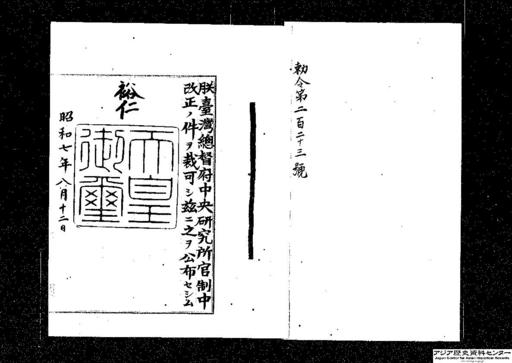 勅令第二百二十三號
朕臺灣總督府中央研究所官制中
改正ノ件ヲ裁可シ茲ニ之ヲ公布セシム
裕仁
天皇
御璽
昭和七年八月十二日
アジア歴史資料センター
Japan Center for Asian Historical Records